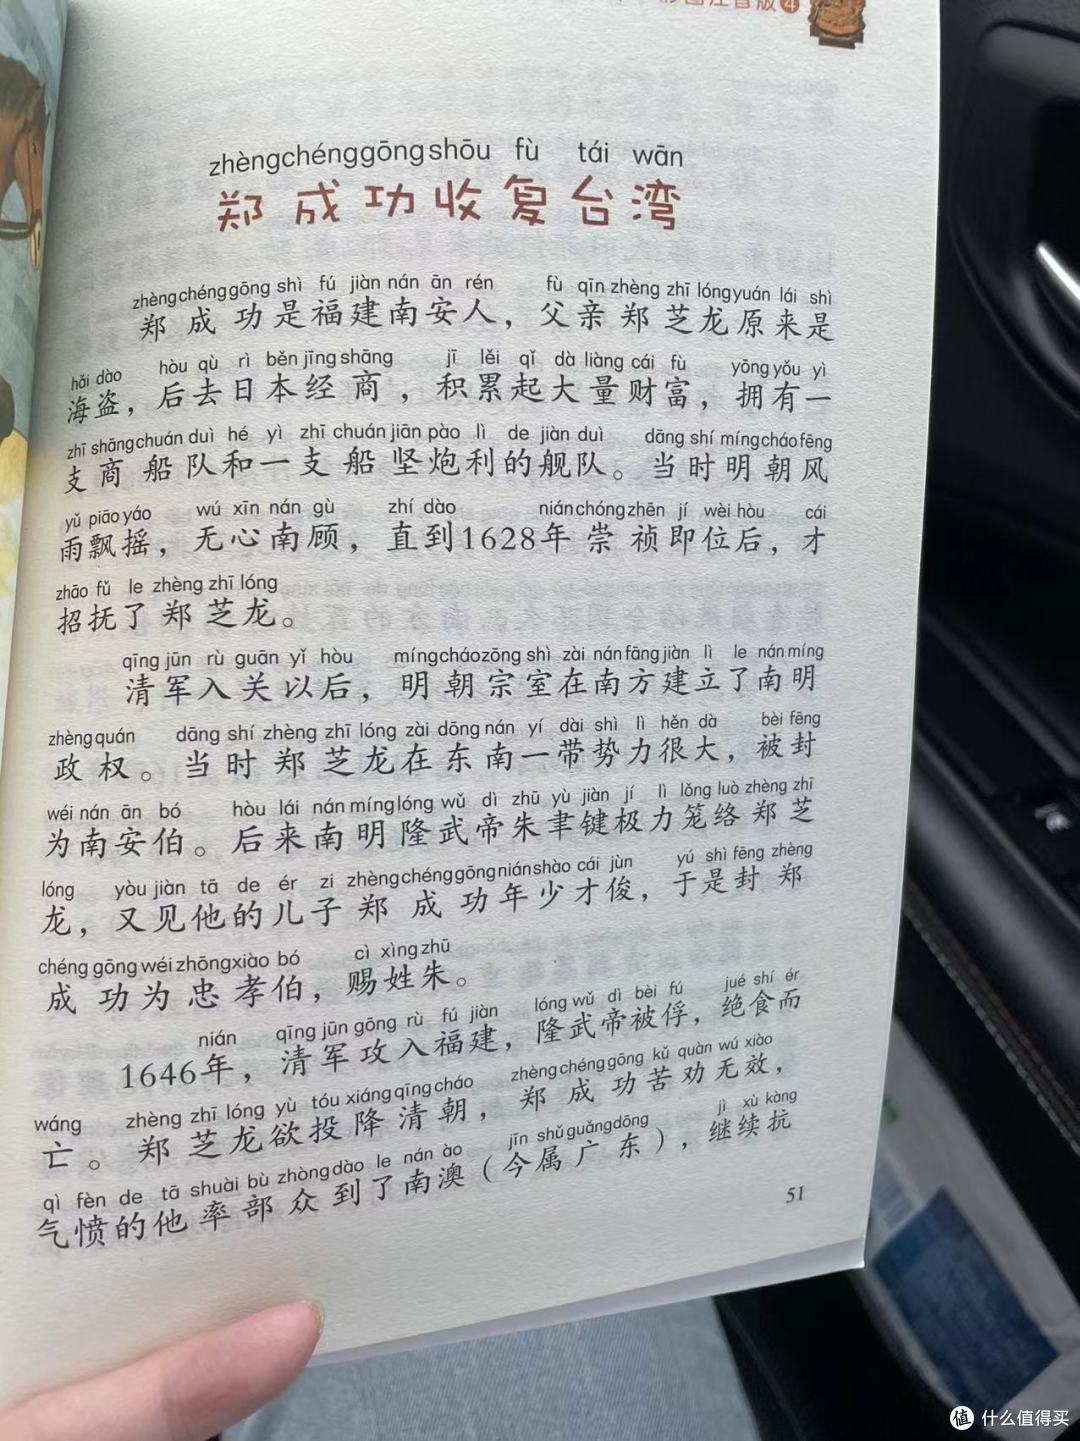 彩图注音版4
zhèngchénggōngshōu fù tái wān
郑成功收复台湾
zhèngchénggōng shì fú jiàn nán ān rén fù qīn zhèng zhī lóngyuán lái shì
郑成功是福建南安人，父亲郑芝龙原来是
hǎi dào hòu qù rì běn jīng shāng jī lěi qǐ dà liàng cái fù yōng yǒu yì
海盗，后去日本经商，积累起大量财富，拥有一
zhī shāngchuán duì hé yì zhī chuán jiān pào lì de jiàn duì dāng shí míngcháo fēng
支商船队和一支船坚炮利的舰队。当时明朝风
yǔ piāo yáo wú xīn nán gù zhí dào nián chóngzhēn jí wèi hòu cái
雨飘摇，无心南顾，直到1628年崇祯即位后，才
zhāo fǔ le zhèng zhī lóng
招抚了郑芝龙。
qīng jūn rù guān yǐ hòu míngcháozōng shì zài nánfāng jiàn lì le nán míng
清军入关以后，明朝宗室在南方建立了南明
zhèngquán dāng shí zhèng zhī lóng zài dōng nán yí dài shì lì hěn dà bèi fēng
政权。当时郑芝龙在东南一带势力很大，被封
wéi nán ān bó hòu lái nán míng lóng wǔ dì zhū yù jiàn jí lì lǒng luò zhèng zhī
为南安伯。后来南明隆武帝朱聿键极力笼络郑芝
lóng yòu jiàn tā de ér zi zhèngchénggōng niánshào cái jùn yú shì fēng zhèng
龙，又见他的儿子郑成功年少才俊，于是封郑
chéng gōng wéi zhōngxiào bó cì xìng zhū
成功为忠孝伯，赐姓朱。
nián qīng jūn gōng rù fú jiàn lóng wǔ dì bèi fú jué shí ér
1646年，清军攻入福建，隆武帝被俘，绝食而
wáng zhèng zhī lóng yù tóu xiáng qīng cháo zhèng chéng gōng kǔ quàn wú xiào
亡。郑芝龙欲投降清朝，郑成功苦劝无效，
qì fèn de tā shuài bù zhòng dào le nán ào jīn shǔ guǎngdōng jì xù kàng
气愤的他率部众到了南澳（今属广东），继续抗
51
值 什么值得买